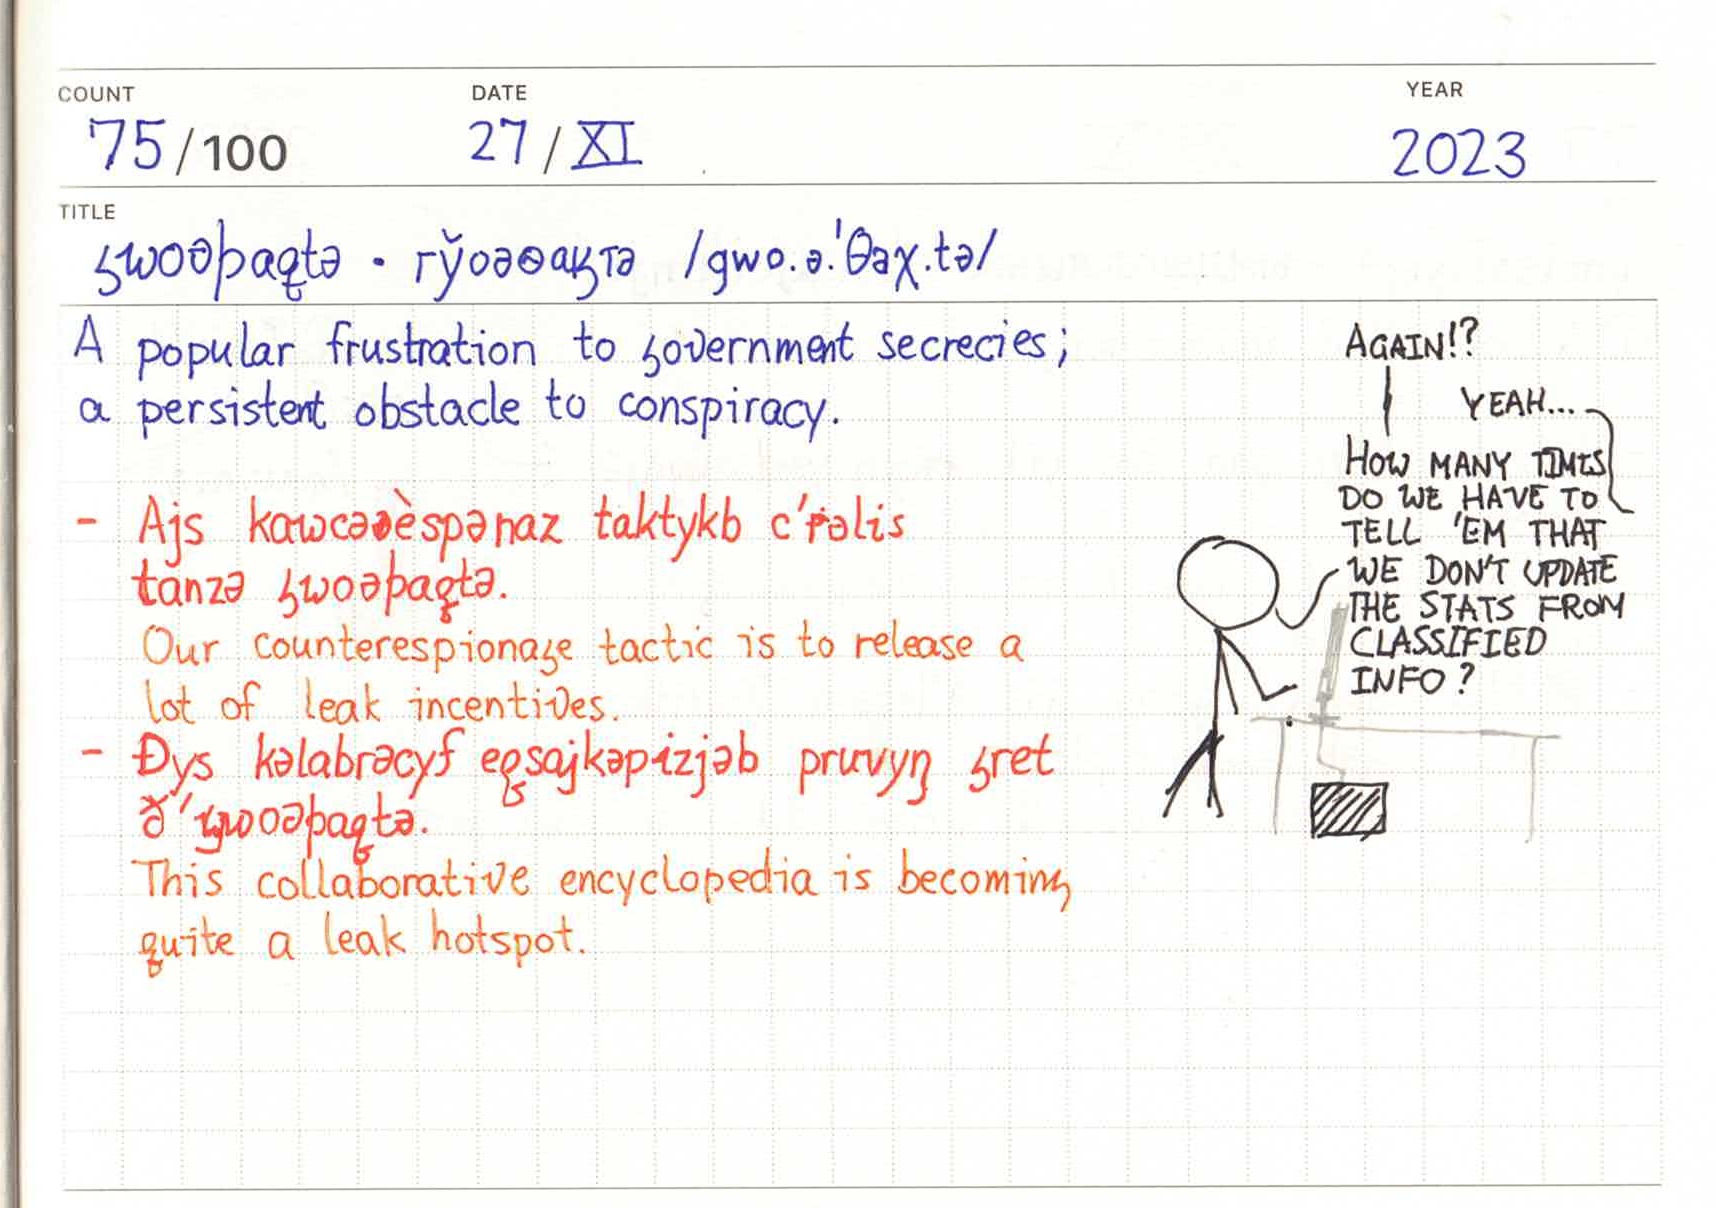 COUNT DATE YEAR
75/100 27/XI 2023
TITLE
ꝣwoəþaqtə · гўоәѳаӄтә /gwo.ə.ˈθaχ.tə/
A popular frustration to government secrecies;
a persistent obstacle to conspiracy.
- Ajs kawcəəèspənaz taktykb c'rəlis
tanzə ꝣwoəþaqtə.
Our counterespionage tactic is to release a
lot of leak incentives.
- Đys kəlabrəcyf eqsajkəpizjəb pruvyŋ ꝣret
ð'ꝣwoəþaqtə.
This collaborative encyclopedia is becoming
quite a leak hotspot.
AGAIN!?
YEAH...
HOW MANY TIMES
DO WE HAVE TO
TELL 'EM THAT
WE DON'T UPDATE
THE STATS FROM
CLASSIFIED
INFO?